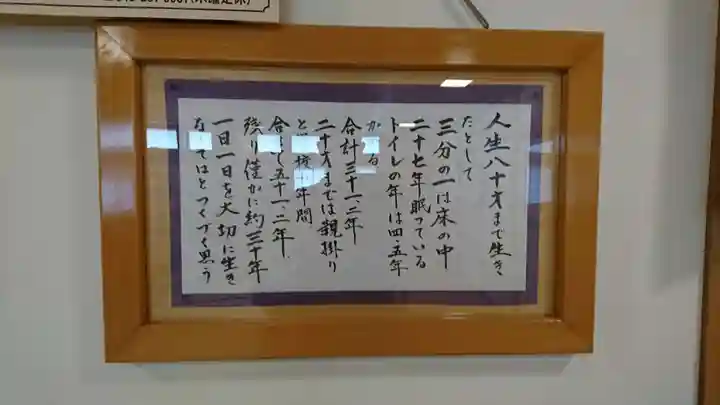 人生八十才まで生き
たとして
三分の一は床の中
二十七年眠っている
トイレの年は四・五年
かかる
合計三十一、二年
二十才までは親掛り
と 十年間
合 て五十一、二年
残り僅かに約三十年
一日一日を大切に生き
なくてはとつくづく思う